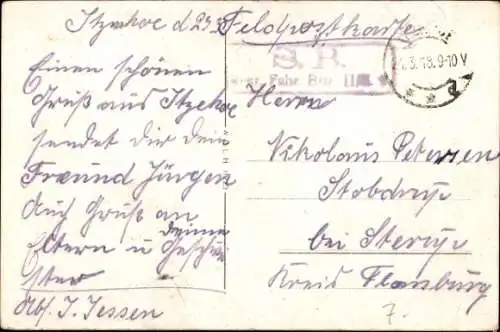 Itzehoe d 23.3. Feldpostkarte
S. B.
Fahr. Br. II
.3.18.9-10 V
Einen schönen
Gruß aus Itzehoe
sendet dir dein
Freund Jürgen
Auch Grüße an
deine
Eltern u Geschwi
ster
Abs. J. Jessen
Herrn
Nikolaus Petersen
Stobdrup
bei Sterup
Kreis Flensburg
7.